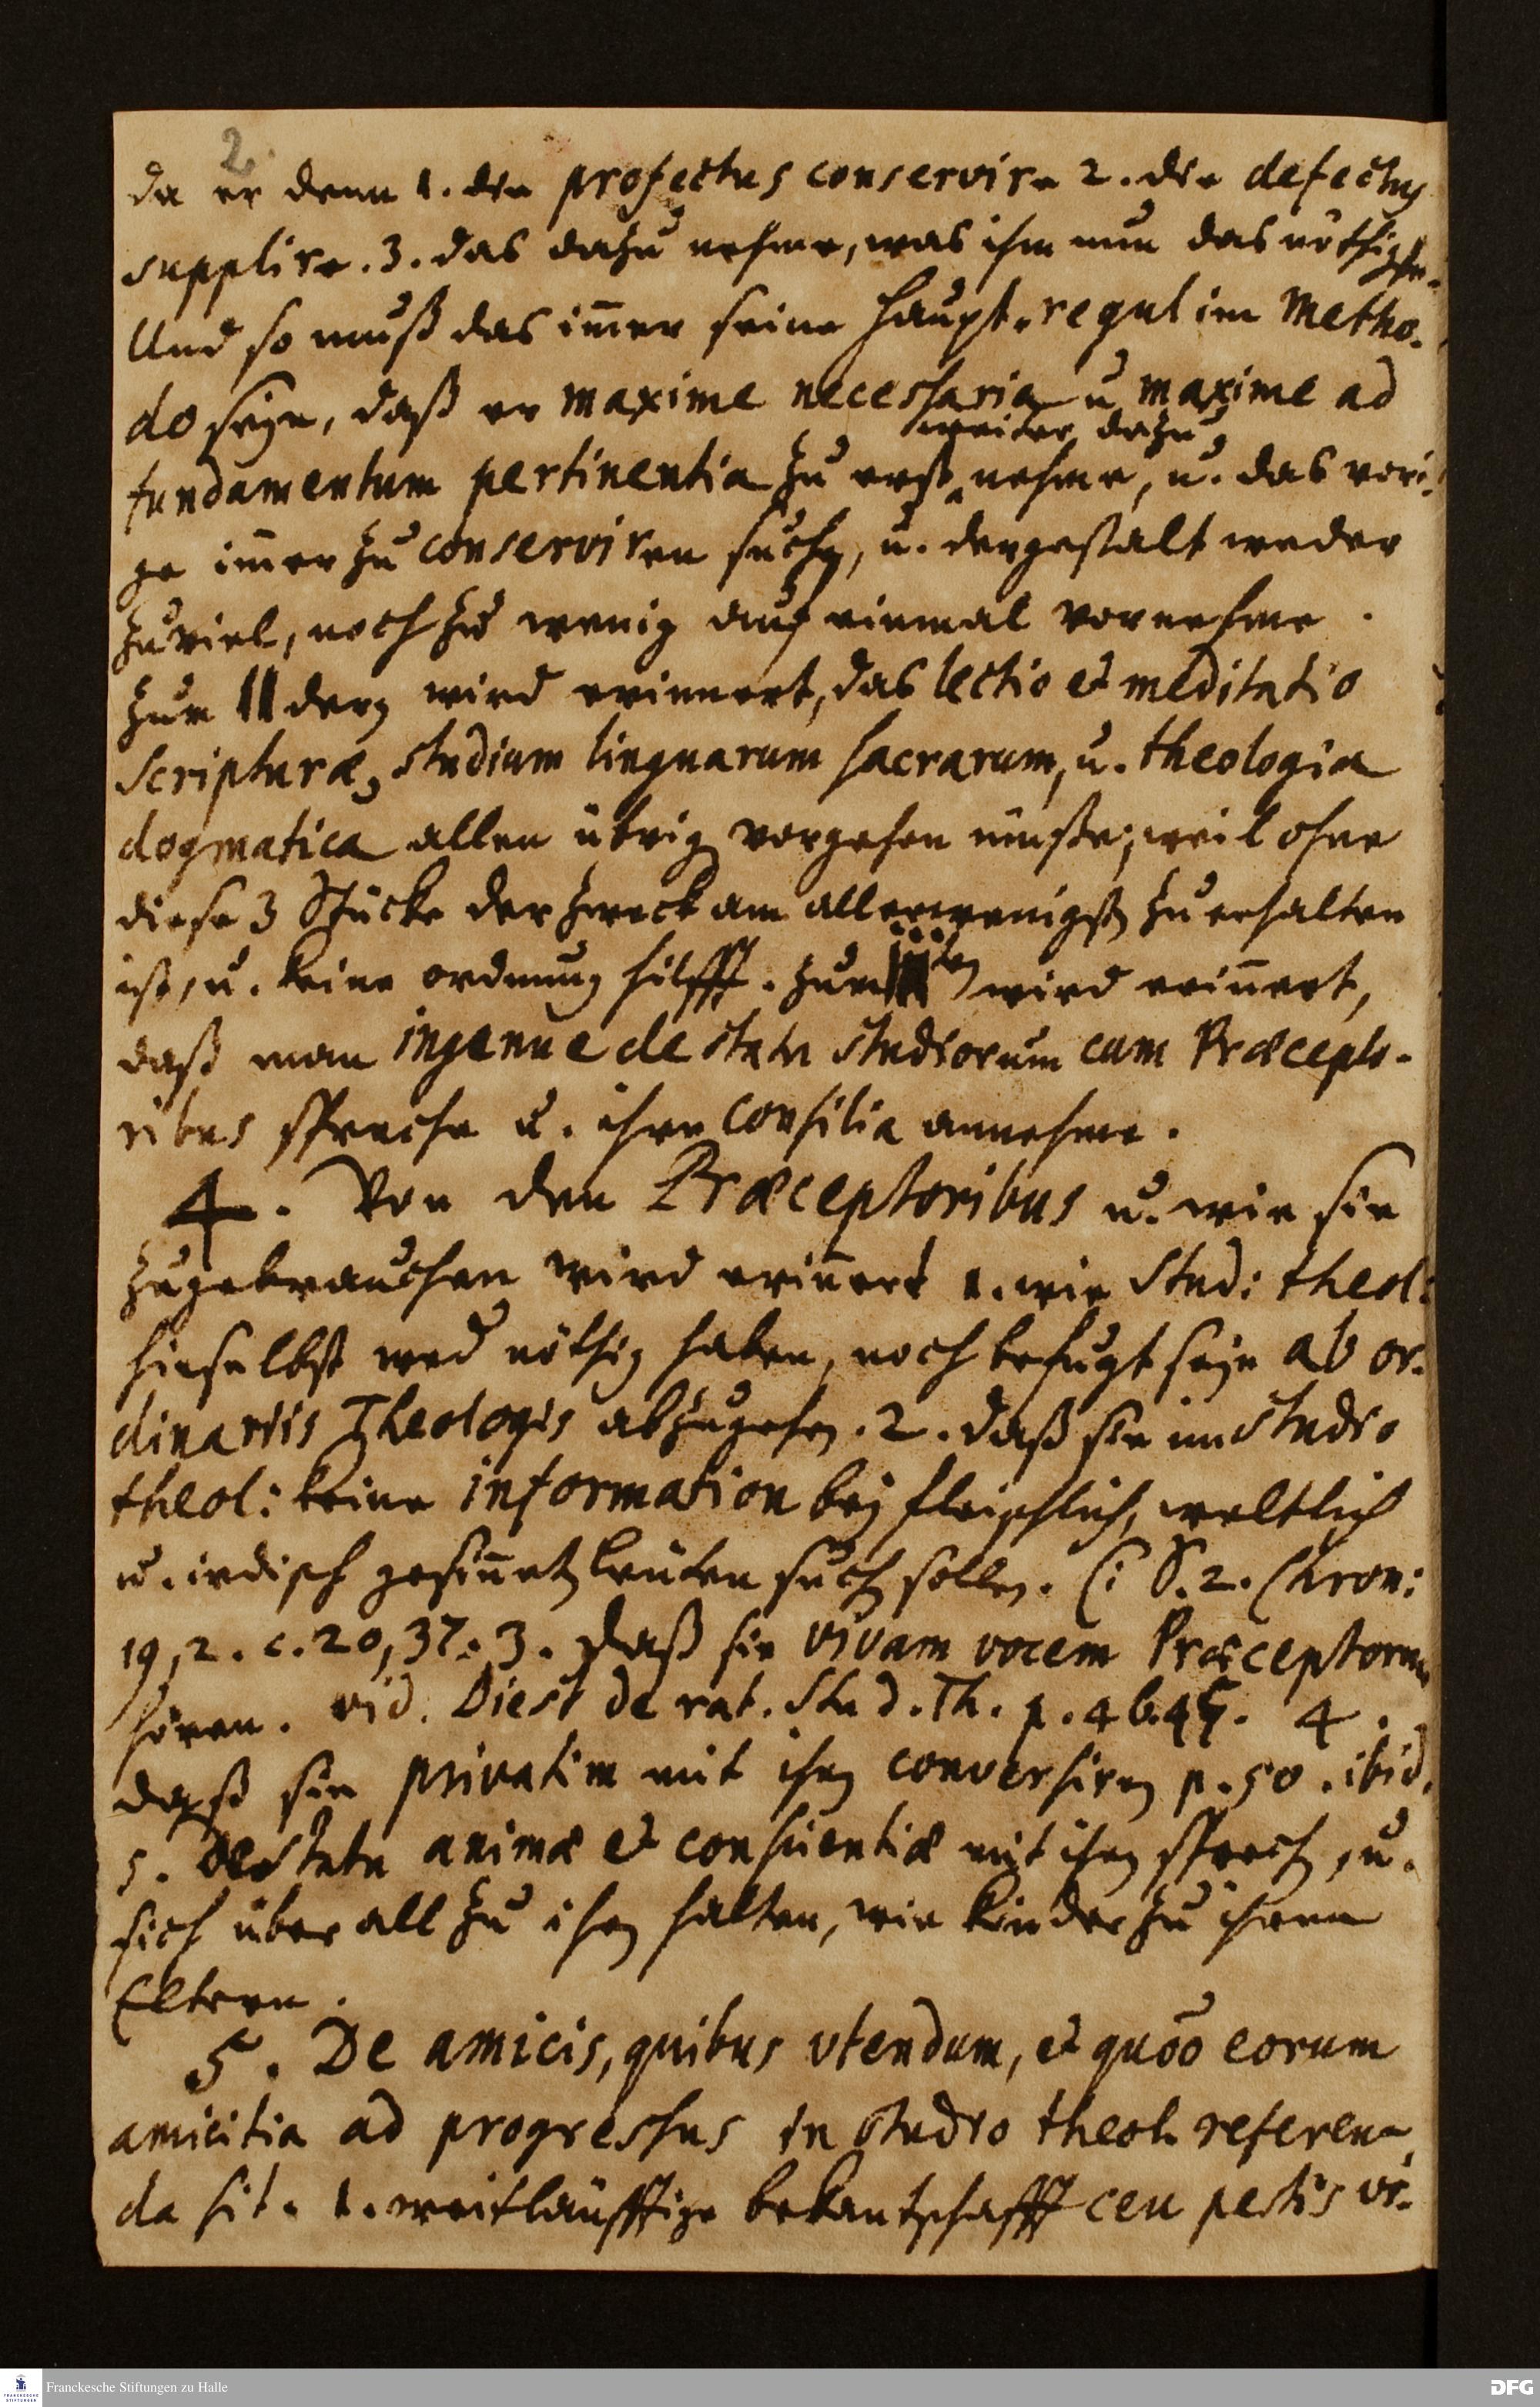 2
da er denn 1. die profectus conservire 2. die defectus
supplire. 3. das dazu nehme, was ihm nun das nöthigste.
Und so muß das im̄er seine Haupt-regul im Metho-
do seyn, daß er maxime necessaria u maxime ad
weiter dazu
fundamentum pertinentia zu erst nehme, u. das vori-
ge im̄er zu conserviren suche, u. dergestalt weder
zu viel, noch zu wenig auf einmal vornehme.
Zum II dern wird erinnert, das lectio et meditatio
Scripturæ, studium linguarum sacrarum, u. theologia
dogmatica allen übrig vorgehen müste, weil ohne
diese 3 Stücke der Zweck am allerwenigst zu erhalten
ist, u. keine ordnung hilfft. Zum III ten wird erin̄ert,
daß man ingenue de statu studiorum cum Præcepto-
ribus spreche u. ihre Consilia annehme.
4. Von den Præceptoribus u. wie sie
zugebrauchen wird erin̄ert 1. wie Stud: theol:
hieselbst wed nöthig haben, noch befugt seyn ab or-
dinariis Theologis abzugehen. 2. daß sie im studio
theol: keine information bey fleischlich, weltlich
u. irdisch gesin̄et Leuten such sollen. (: S. 2. Chron:
19, 2. c. 20, 37. 3. daß sie vivam vocem Præceptorum
hören. vid. Diest de rat. Stud. Th. p. 46.49. 4.
daß sie privatim mit ihn conversiren p. 50. ibid.
5. de statu animæ et conscientiæ mit ihn sprech, u.
sich über all zu ihn halten, wie Kinder zu ihren
Eltern.
5. De amicis, quibus utendum, et quoō eorum
amicitia ad progressus in studio theol. referen-
da sit. 1. weitläufftige bekantschafft ceu pestis vi-
Franckesche Stiftungen zu Halle
DFG